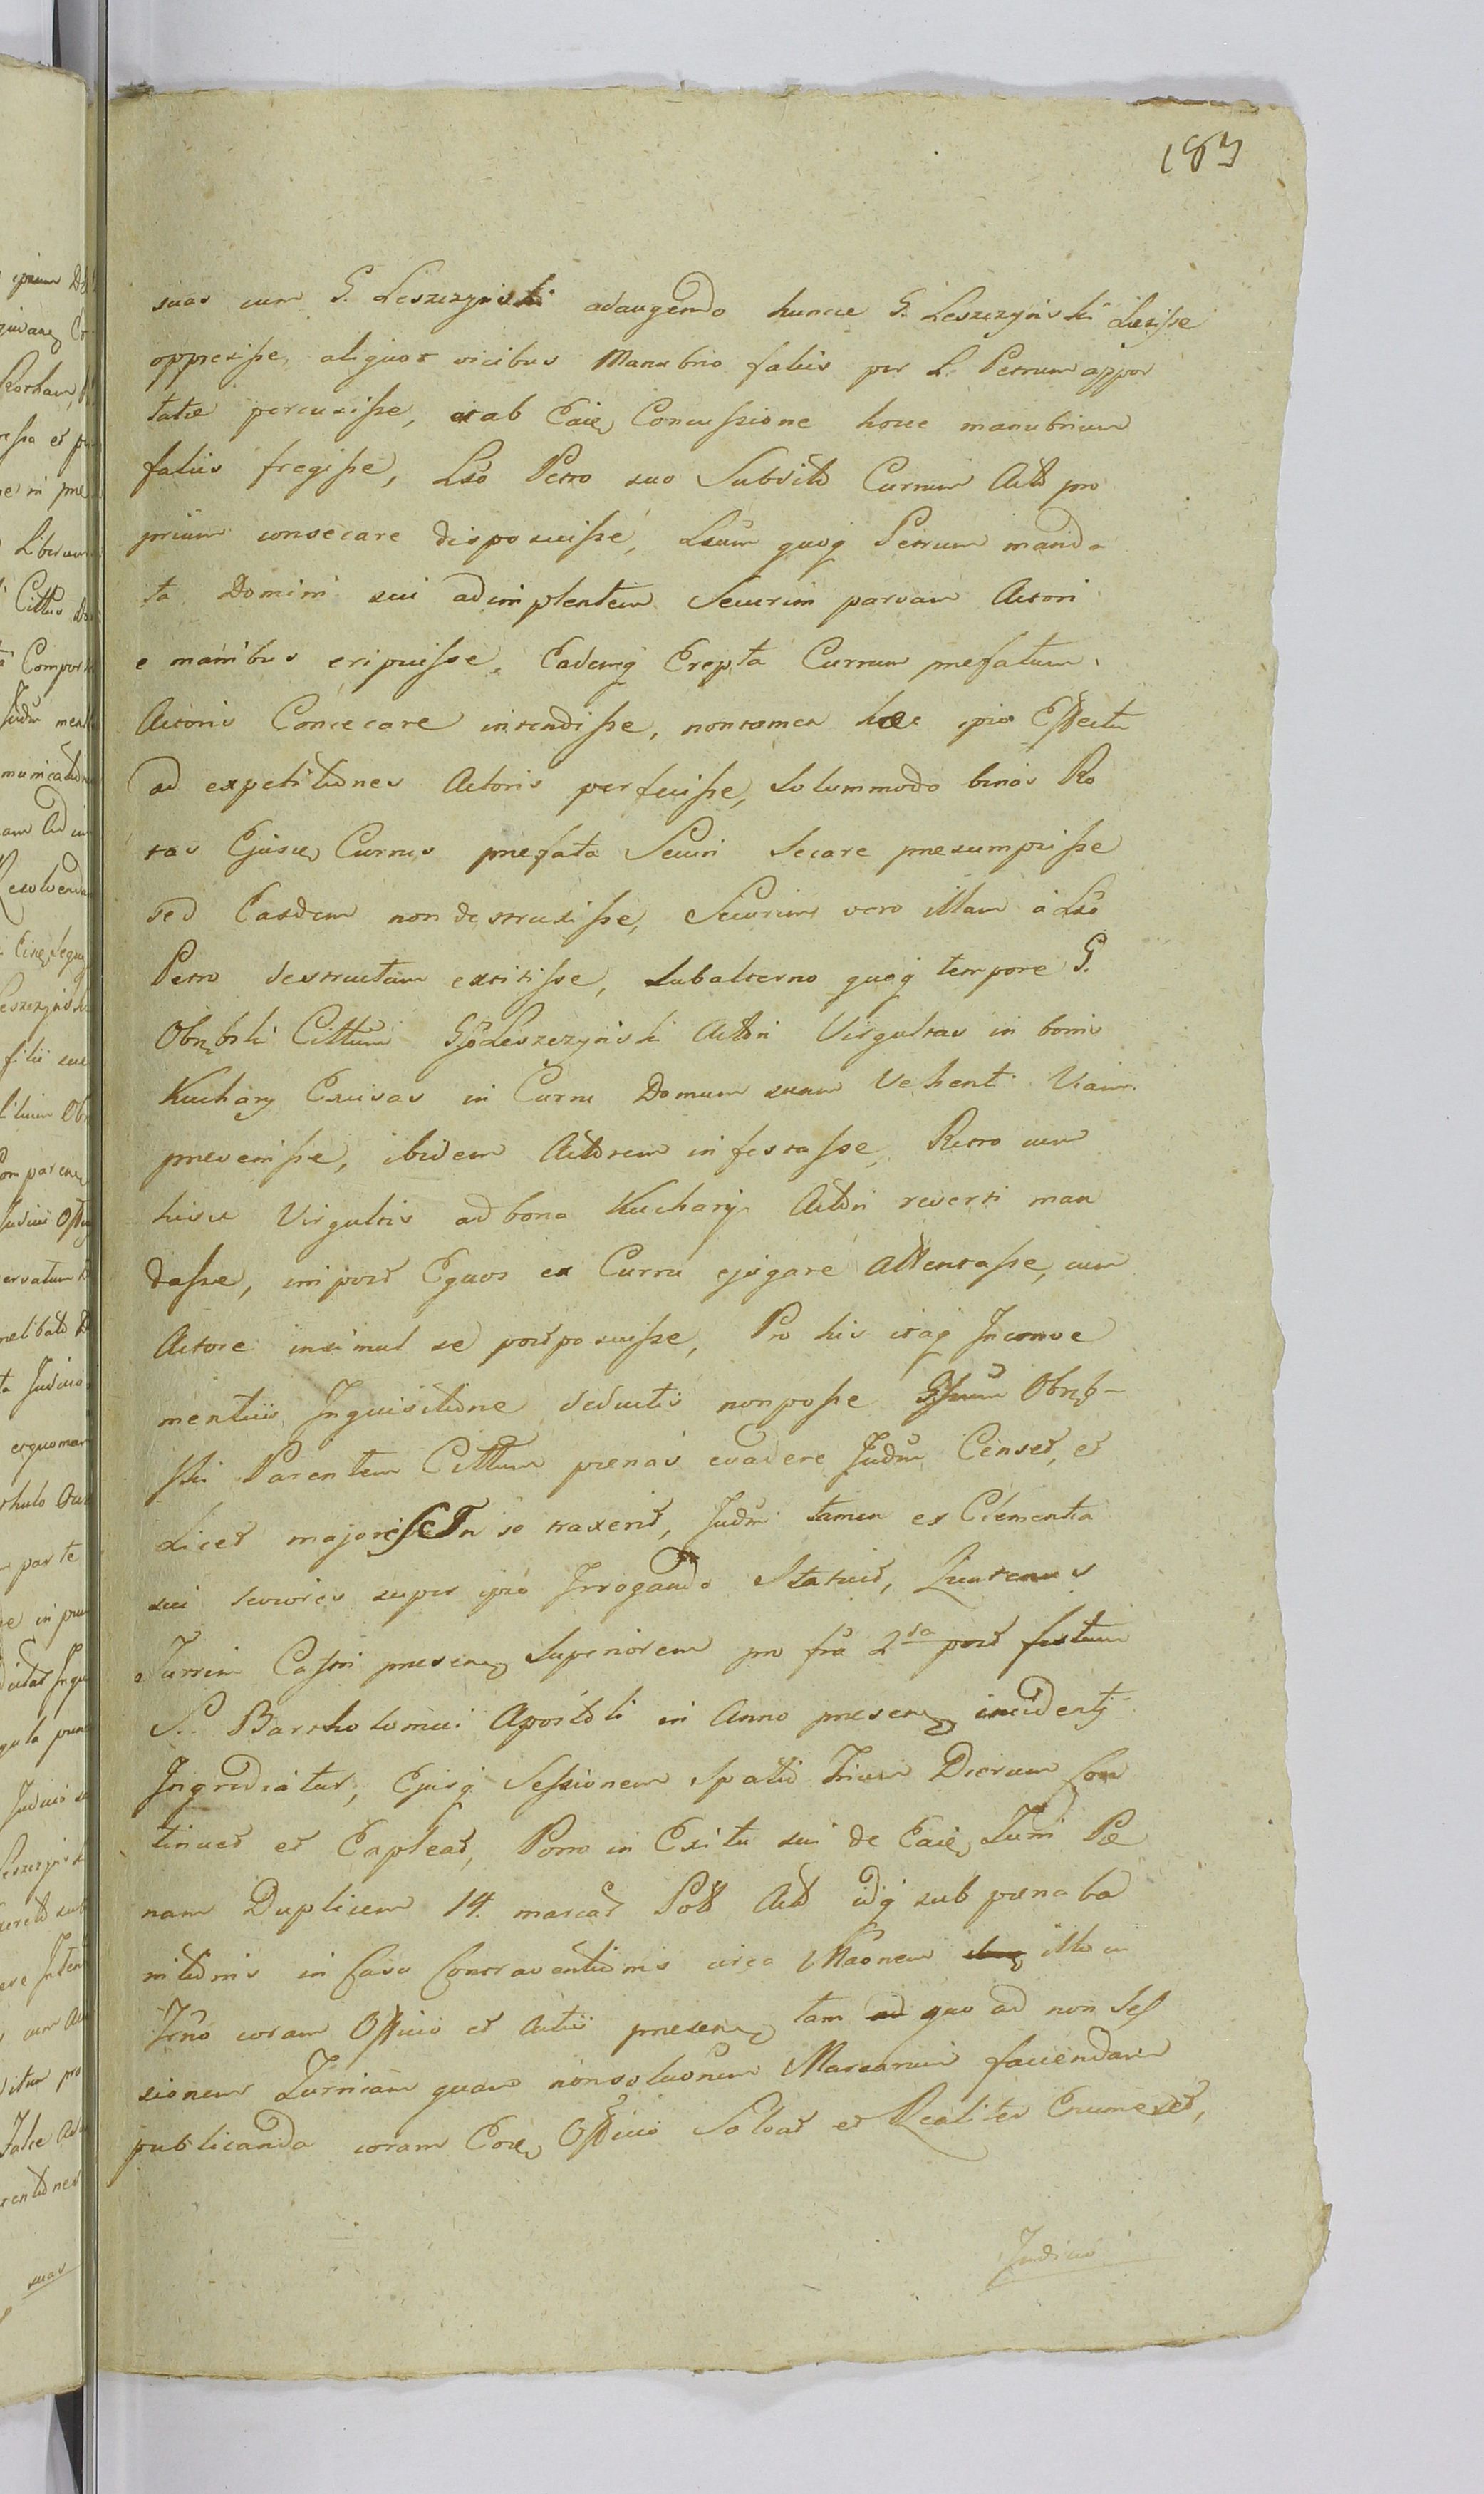 183
suas cum G. Leszczynski adaugendo huncce G. Leszczynski Lusisse
oppresisse, aliquot vicibus Manubrio falcis per L. Petrum appor
tatæ percusisse, et ab Eaie Concussione hocce manubrium
falcis fregisse, Lsó Petro suo Subdito Currum Actó pro
prium consecare disposuisse, Lsum quoq Petrum manda
ta Domini sui adimplentem Securim parvam Actori
e manibus eripuisse, Eademq Erepta Currum prefatum
Actoris Concecare intendisse, non tamen hæc ipso Effectu
ad expetitiones Actoris perfecisse, Solummodo binas Ro
tas Ejusce Currus prefata Securi Secare presumpsisse
sed Easdem non destruxisse, Securim vero illam à Lsó
Petro destructam extitisse, Subalterno quoq tempore G.
Obrębski Cittum Gsó Leszczynski Actóri Virgultas in bonis
Kuchary Excisas in Curru Domum suam Vehenti Viam
prevenisse, ibidem Actórem infestasse, Retro cum
hisce Virgultis ad bona Kuchary Actóri reverti man
dasse, imposť Equos ex Curru ejugare attentasse, cum
Actore insimul se posťposuisse, Pro his itaq Inconve
mentiis Inquisitióne deductis non posse Obręb-
ski Parentem Cittum pænas evadere Judm Censeť, et
Liceť majores In se traxeriť, Judm tamen ex Clementia
sui seviories super ipso Irrogando Statuiť, Quatenus
Turrim Castri presens Superiorem pro fra 2da posť festum
S. Bartholomæi Apostóli in Anno presens incidenti
Ingrediatur, Ejusq Sessionem Spatió Trium Dierum Con
tinueť et Expleať, Porro in Exitu sui de Eaie Turri Pæ
nam Duplicem 14. marcar Polł Actó idq sub pæna ba
nitiónis in Casu Contraventiónis circa Maonem illo in
Trnó coram Officio et Actis presens tam quo ad non Ses
sionem Turriam quam non solutionem Marcarum faciendam
publicanda coram Eoie Officio Solvať et Realiter Enumereť,
Judicio